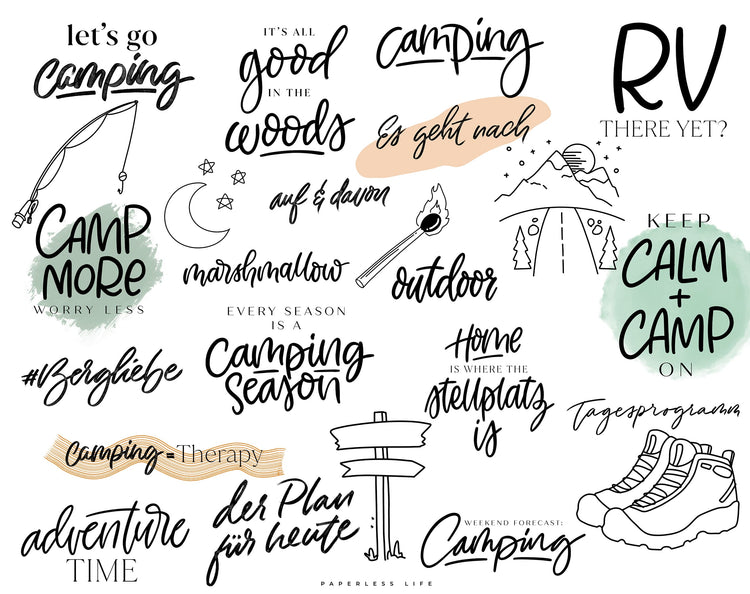 let's go
camping
IT'S ALL
good
IN THE
woods
camping
RV
THERE YET?
Es geht nach
auf & davon
CAMP
MORE
WORRY LESS
marshmallow
outdoor
KEEP
CALM
+
CAMP
ON
#Bergliebe
EVERY SEASON
IS A
Camping
season
Home
IS WHERE THE
stellplatz
is
Tagesprogramm
Camping = Therapy
adventure
TIME
der Plan
für heute
WEEKEND FORECAST:
Camping
PAPERLESS LIFE